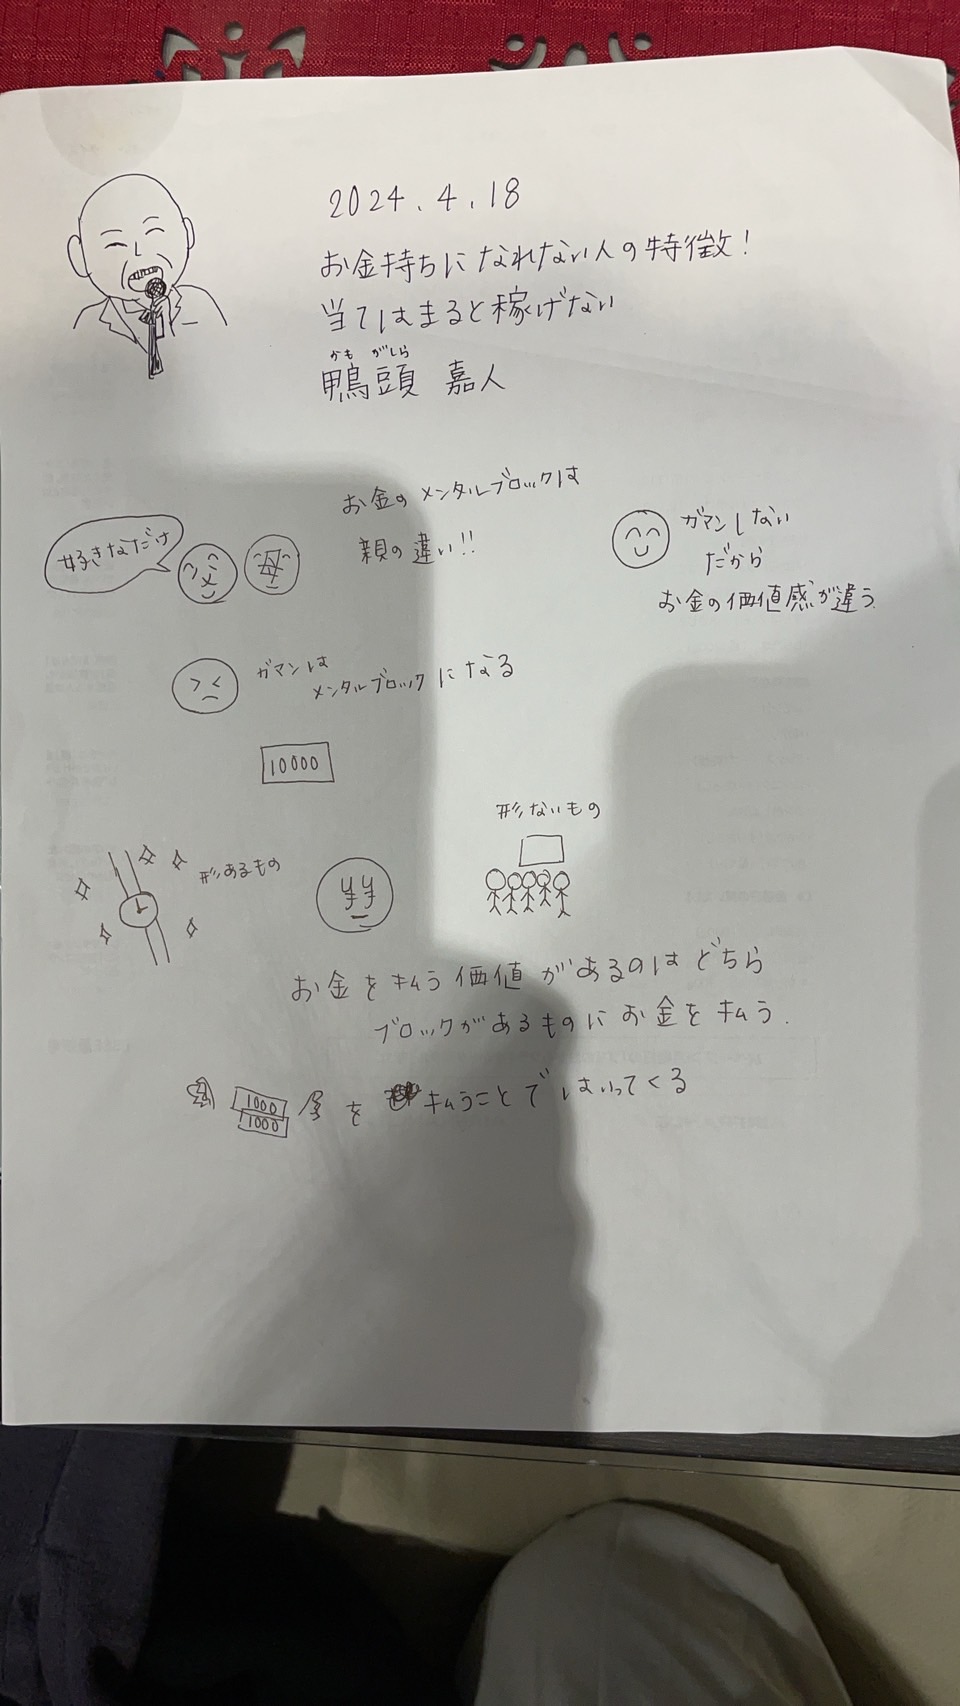 2024.4.18
お金持ちになれない人の特徴!
当てはまると稼げない
かも がしら
鴨頭 嘉人
お金のメンタルブロックは
親の違い!!
好きなだけ
父
母
ガマンしない
だから
お金の価値感が違う
ガマンは
メンタルブロックになる
10000
形ないもの
形あるもの
お金を払う価値があるのはどちら
ブロックがあるものにお金を払う.
1000
1000
を 払うことではいってくる